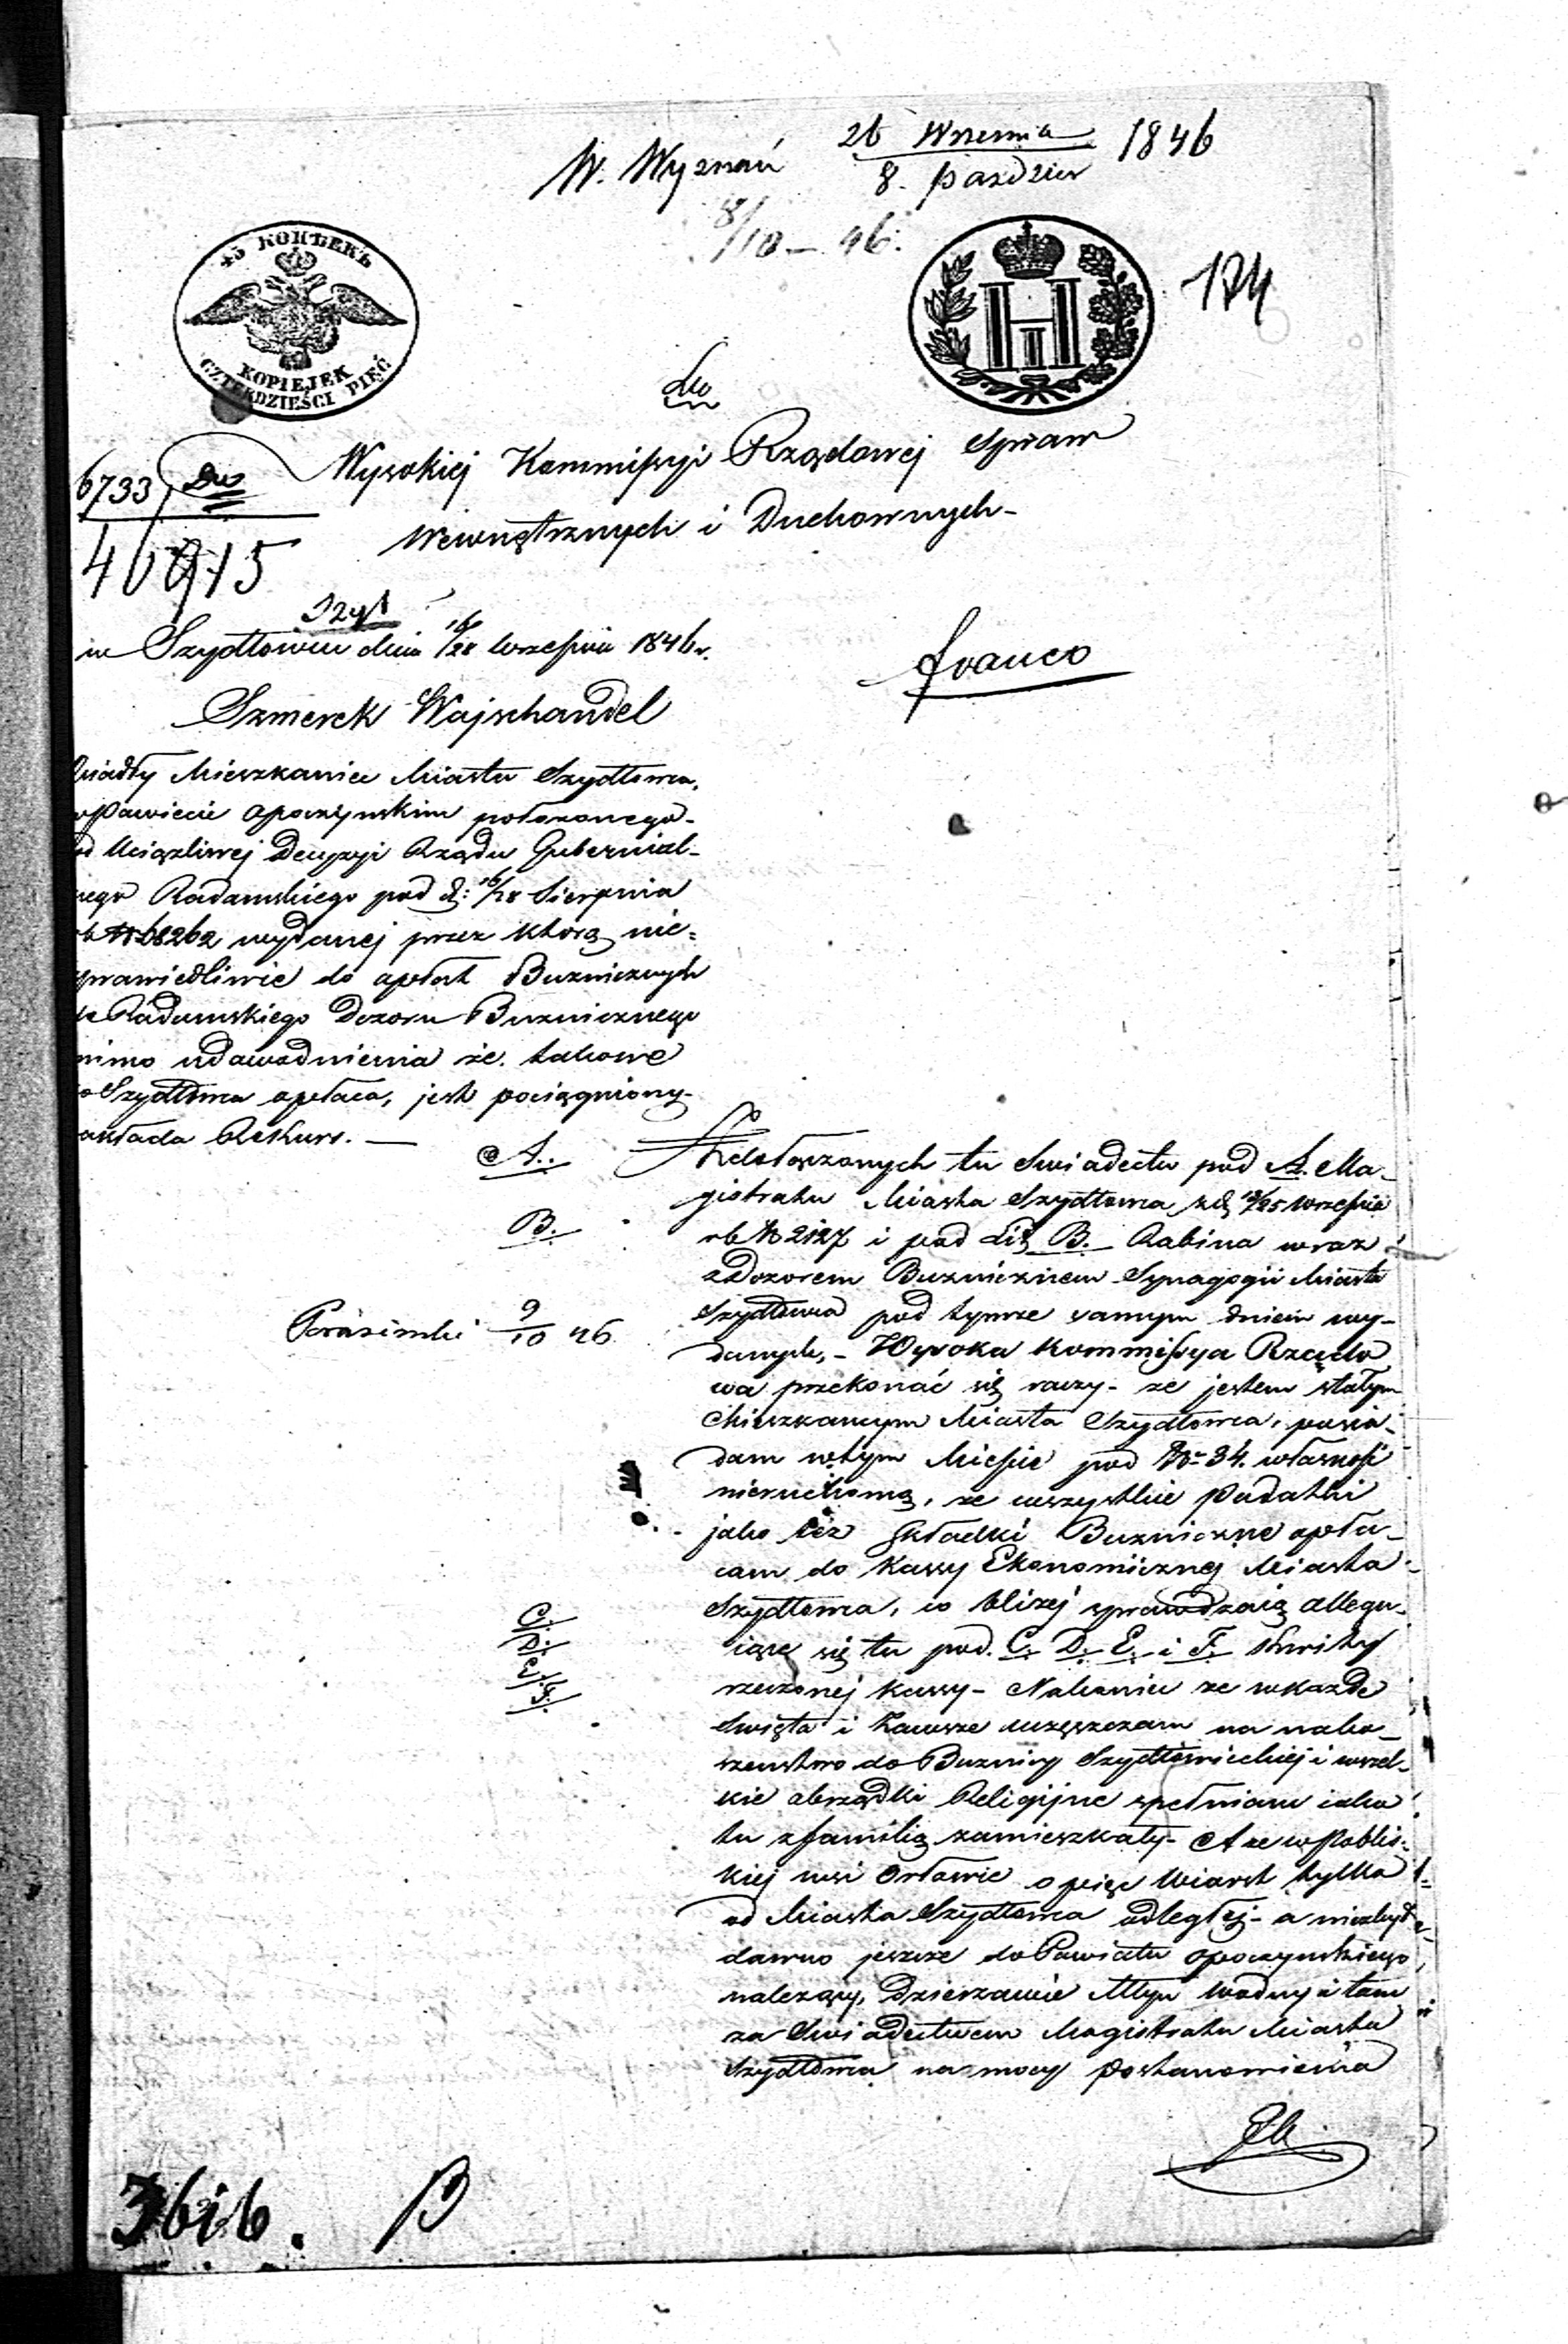 W. Wyznań 26 Wrzesnia 1846
8. Paździer
8/10 – 46.
45 КОПѢЕКЪ
KOPIEJEK
CZTERDZIEŚCI PIĘĆ
174
Do
Wysokiej Kommissyi Rządowej Spraw
Wewnętrznych i Duchownych
6733
w Szydłowcu dnia 16/28 Września 1846 r.
franco
Szmerek Wajschandel
osiadły Mieszkaniec Miasta Szydłowca,
w Powiecie Opoczyńskim położonego
od Uciążliwej Decyzyi Rządu Gubernial-
nego Radomskiego pod d: 16/28 Sierpnia
rb N 68262 wydanej przez którą nie=
sprawiedliwie do opłat Buzniczych
Radomskiego Dozoru Buznicznego
mimo udowodnienia że takowe
do Szydłowca opłaca, jest pociągniony
zakłada Rekurs. —
A.
Z dołączonych tu Swiadectw pod A. Ma-
gistratu Miasta Szydłowca z d 13/25 Września
B.
rb N 2127 i pod Lit B. Rabina wraz
z Dozorem Buznicznem Synagogii Miasta
Szydłowca pod tymże samym dniem wy-
9/10 46
danych, – Wysoka Kommissya Rządo
wa przekonać się raczy – że jestem stałym
Mieszkańcym Miasta Szydłowca, posia-
dam w tym Mieście pod No 34. własność
nieruchomą, że wszystkie Podatki
jako też Składki Buzniczne opła-
cam do Kassy Ekonomicznej Miasta
Szydłowca, co bliżej sprawdzaią allegu-
C.
D.
E.
F.
iące się tu pod. C. D. E. i F. kwity
rzeczonej kassy – Nakoniec że w każde
Swięta i zawsze uczęszczam na nabo-
żeństwo do Buznicy Szydłowieckiej i wszel-
kie obrządki Religijne spełniam iako
tu z familią zamieszkały – A że w Poblis-
kiej wsi Orłowie o pięć Wiorst tylko
od Miasta Szydłowca odległej – a niezbyt
dawno jeszcze do Powiatu Opoczyńskiego
należący, Dzierżawie Młyn Wodny i tam
za Swiadectwem Magistratu Miasta
Szydłowca na mocy Postanowienia
3616. B